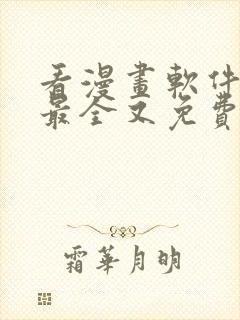 看漫畫軟件
最全又免費
霜華月明